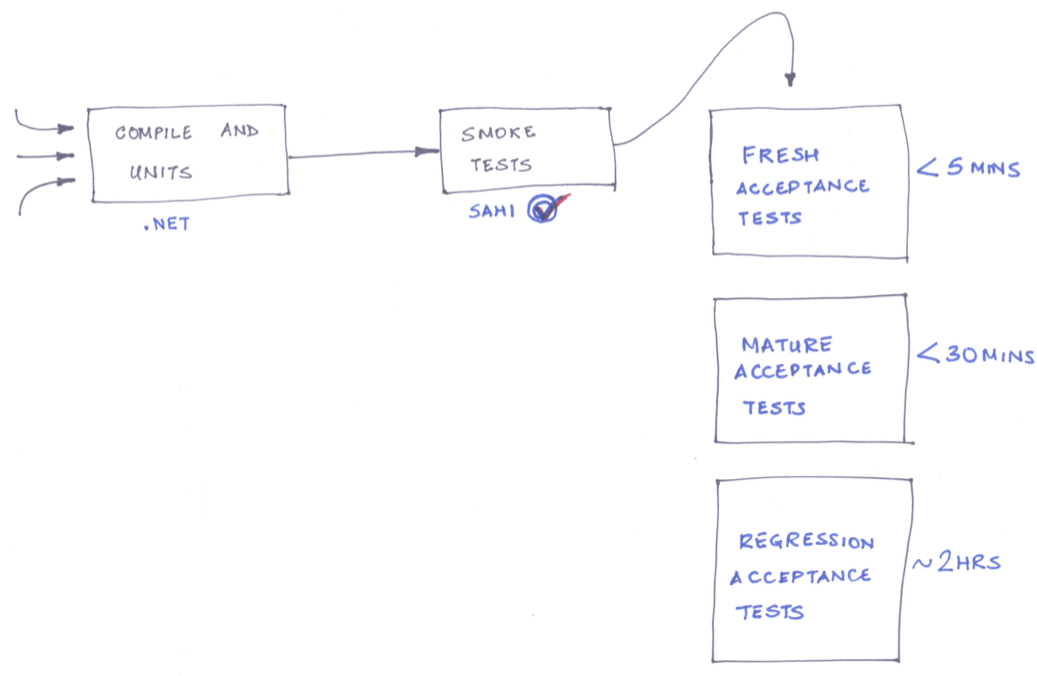 COMPILE AND
UNITS
.NET
SMOKE
TESTS
SAHI
FRESH
ACCEPTANCE
TESTS
< 5 MINS
MATURE
ACCEPTANCE
TESTS
< 30 MINS
REGRESSION
ACCEPTANCE
TESTS
~ 2 HRS